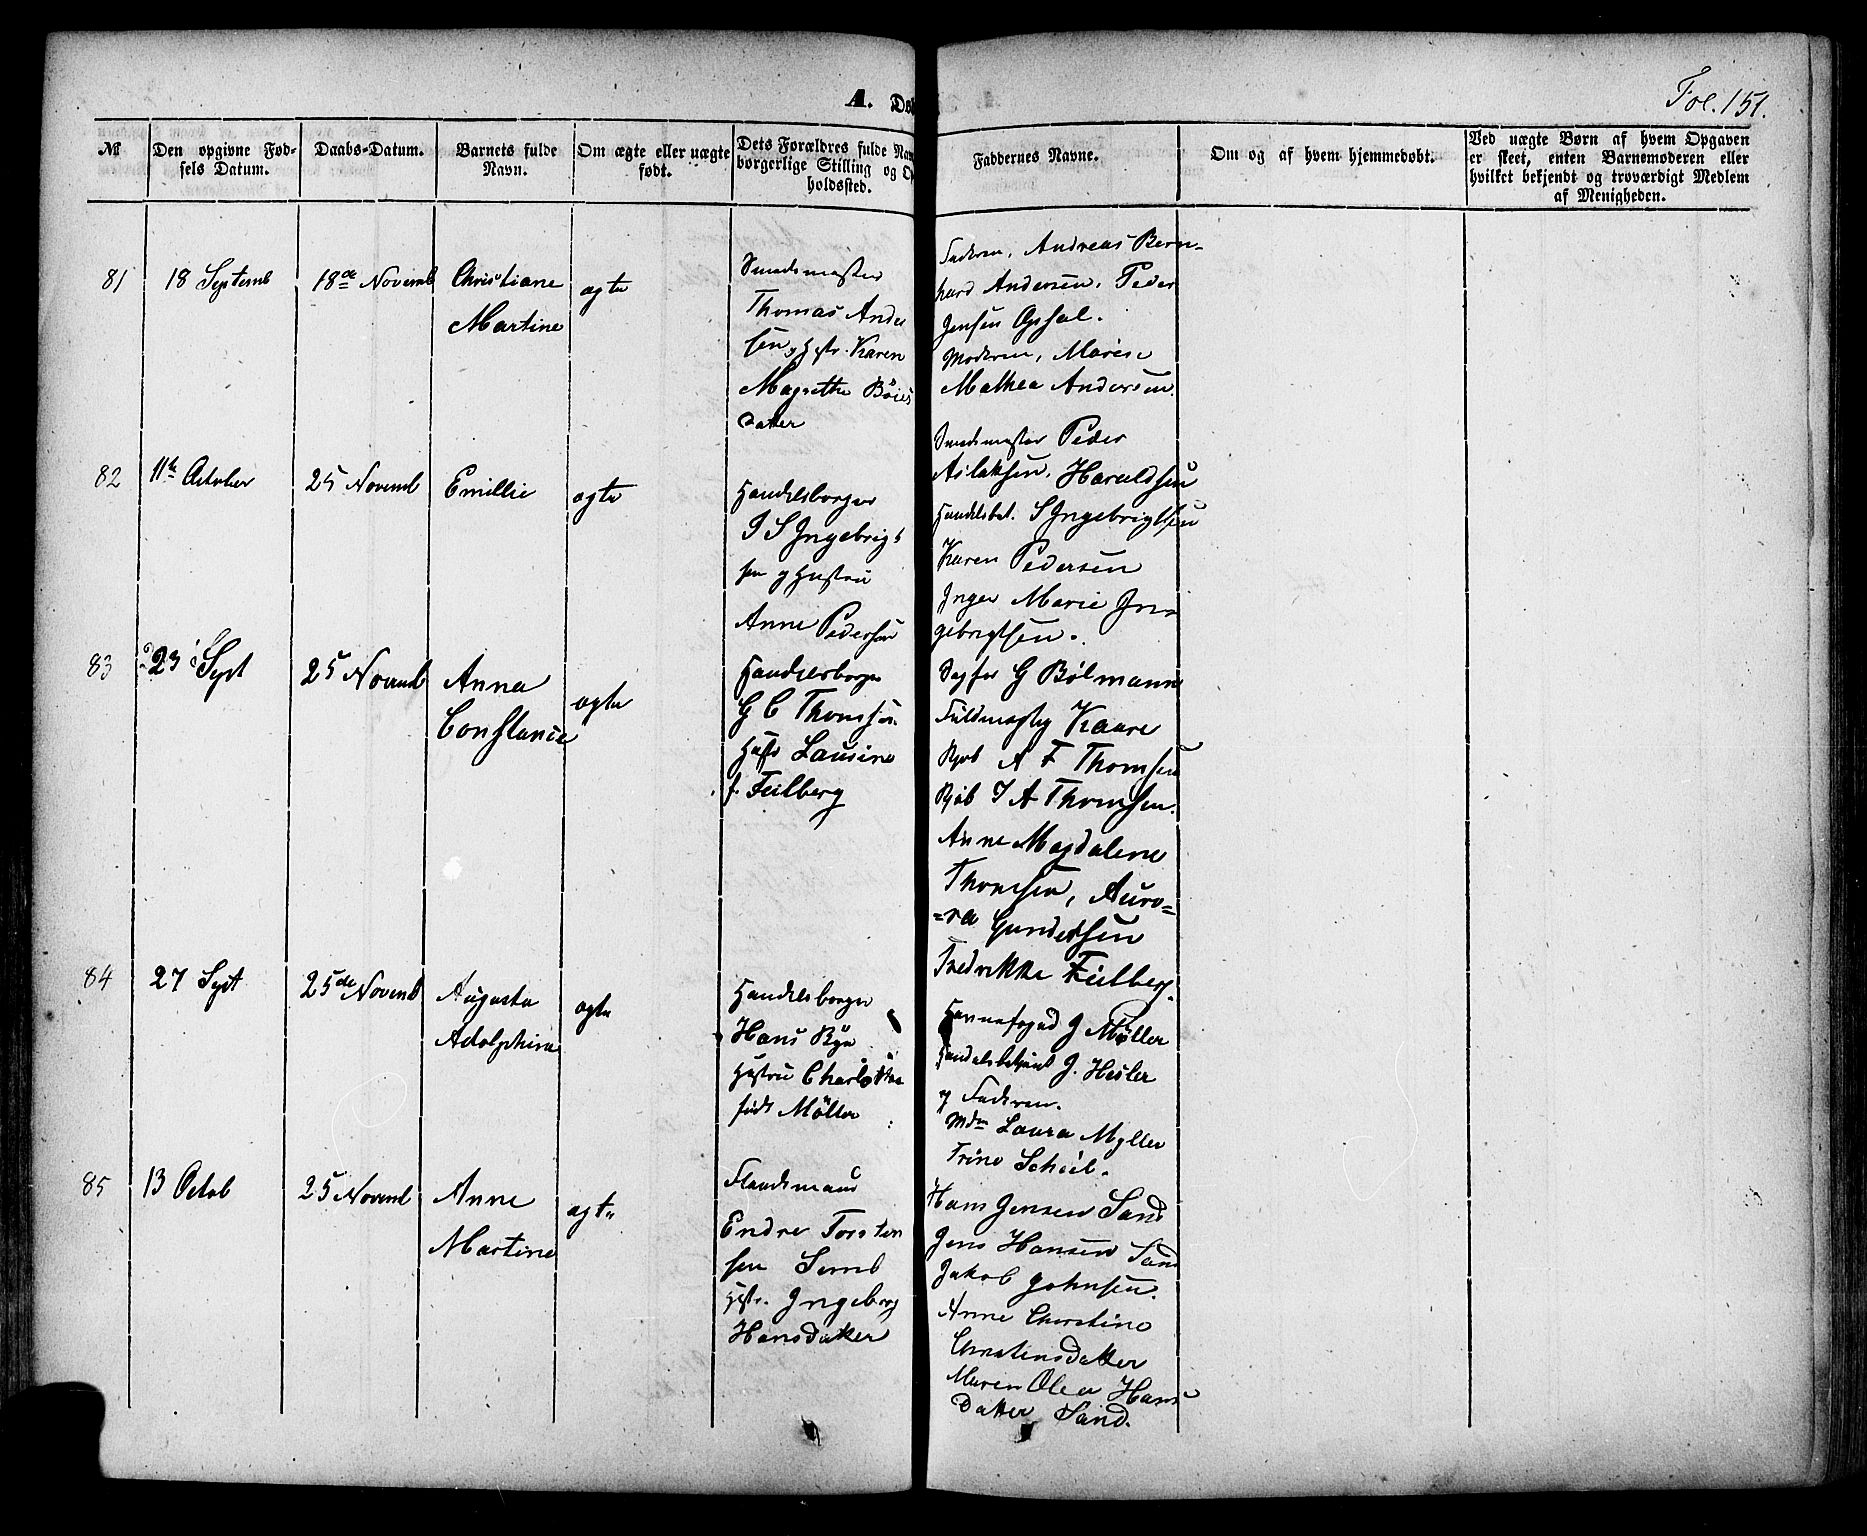 Fol. 151.
A. Døb
№
Den opgivne Fød-
sels Datum.
Daabs-Datum.
Barnets fulde
Navn.
Om ægte eller uægte
født.
Dets Forældres fulde Nav
borgerlige Stilling og Op
holdssted.
Faddernes Navne.
Om og af hvem hjemmedøbt.
Ved uægte Børn af hvem Opgaven
er skeet, enten Barnemoderen eller
hvilket bekjendt og troværdigt Medlem
af Menigheden.
81
18 Septemb
18de Novemb
Christiane
Martine
ægte
Smedsmester
Thomas Ander
sen, Hstr. Karen
Magrethe Böies
datter
Faderen, Andreas Bern-
hard Andersen, Peder
Jensen Opsal.
Moderen, Maren
Mathea Andersen
82
11te October
25 Novemb
Emillie
ægte
Handelsborger
I S Ingebrigt
sen og Hustru
Anne Pedersen
Smedmester Peder
Aslaksen, Haraldsen
Handelsbet. S Ingebrigtsen
Karen Pedersen
Inger Marie In-
gebrigtsen.
83
23 Sept
25 Novemb
Anna
Constance
ægte
Handelsborger
G C Thomsen
Hustr Lausine
f. Feilberg
Sagfør G Bölmann
Fuldmægtig Kaare
Kjøb A F Thomsen
Kjøb I A Thomsen.
Anne Magdalene
Thomsen, Auro=
=ra Gundersen
Fredrikke Feilberg.
84
27 Sept
25de Novemb
Augusta
Adolphine
ægte
Handelsborger
Hans
Hustru Charlotte
født Möller
Havnefoged J Møller
Handelsbetjent J. Hesler
og Faderen.
Mdm Laura Myller
Trine Scheel.
85
13 Octob
25 Novemb
Anne
Martine
ægte
Endre Torsten
sen Semb
Hstr. Ingeborg
Hansdatter
Hans Jensen Sand
Jens Hansen Sand
Jakob Johnsen.
Anne Christine
Christensdatter
Maren Olea Hans
datter Sand.